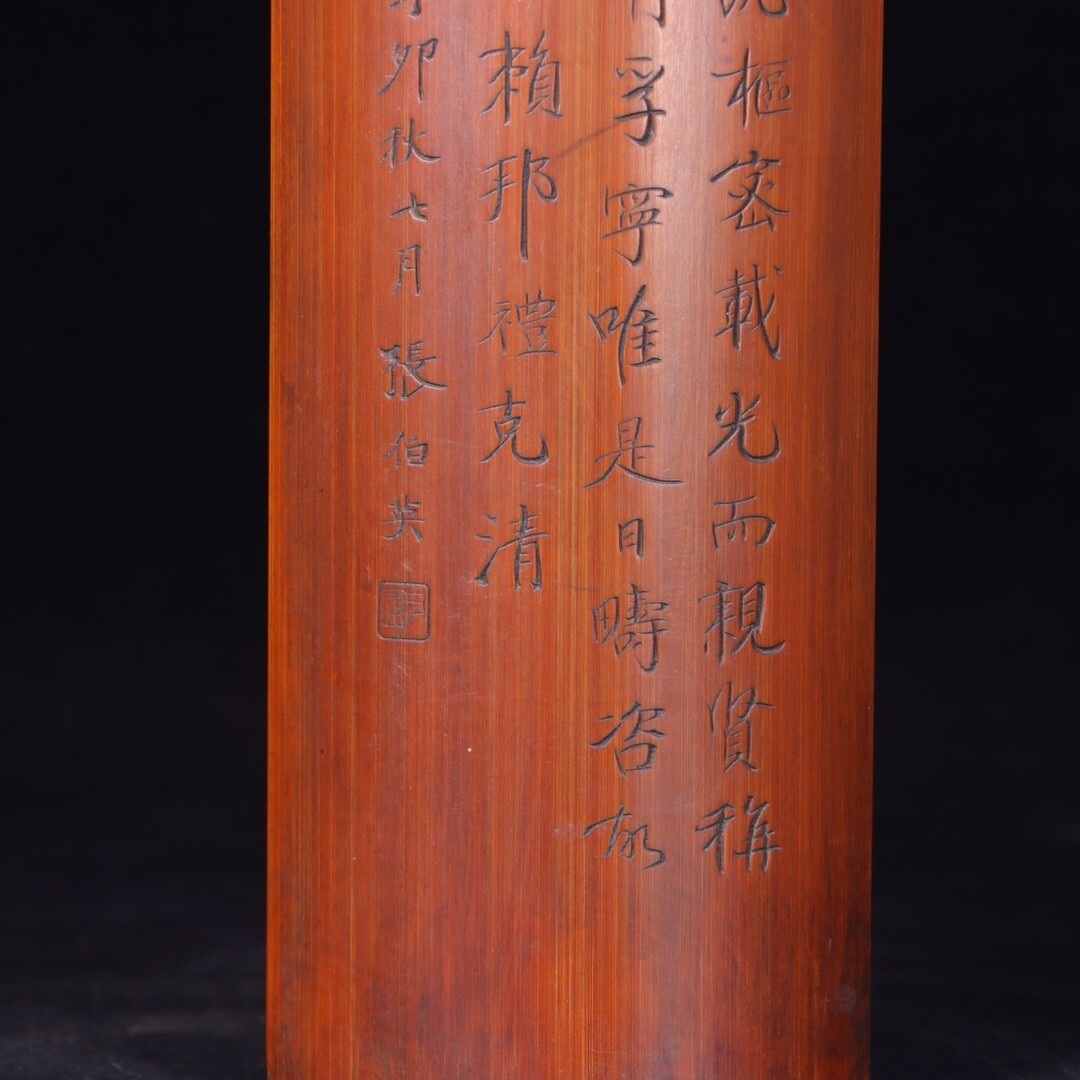 樞密載光而親賢稱
孚寧唯是日疇咨故
賴邦禮克清
卯秋七月張伯英